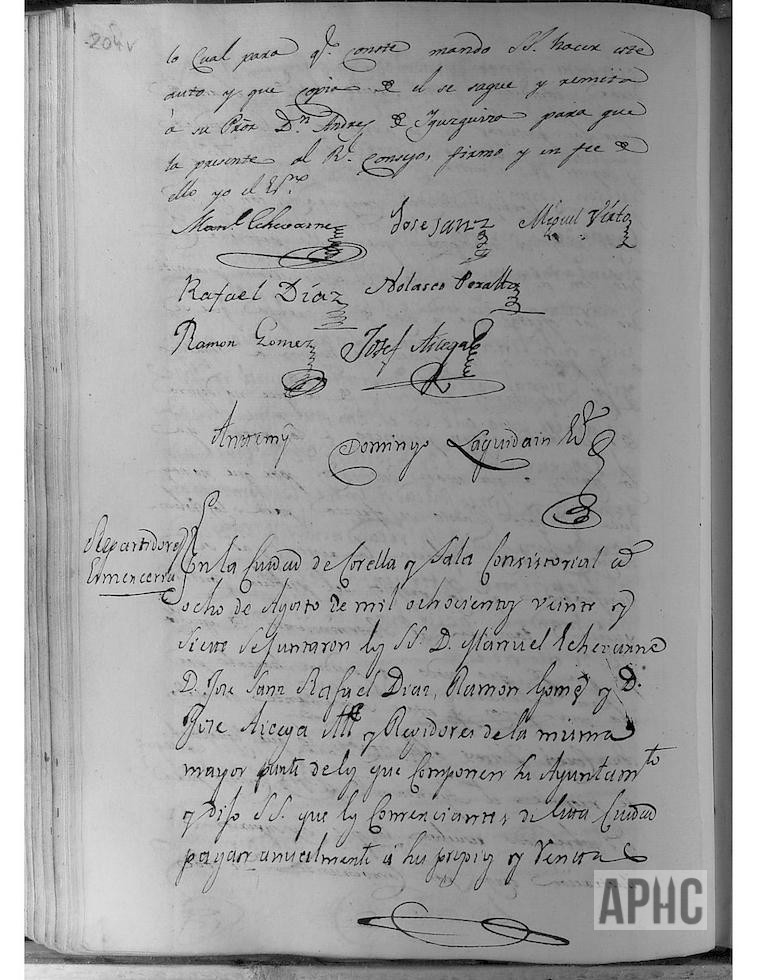 204v
lo Cual para qe. conste mando SS. hacer este
auto y que copia de el se saque y remita
á su Pror. Dn. Andres de Yguzquiza para que
la presente al Rl. Consejo, firmo y en fee de
ello yo el Esno.
Manl. Echevarne
Jose Sanz
Miguel Virto
Rafael Diaz
Nolasco Peralta
Ramon Gomez
Josef Aicega
Antemi
Domingo Laquidain Esno
Repartidores
En la Ciudad de Corella y Sala Consistorial a
ocho de Agosto de mil ochocientos veinte y
siete se Juntaron los SS. D. Manuel Echevarne
D. Jose Sanz Rafael Diaz, Ramon Gomez y D.
Jose Aicega Alle y Regidores de la misma
mayor parte de los que Componen su Ayuntamto
y dijo SS. que los Comerciantes de esta Ciudad
pagan anualmente á sus propios y Rentas
APHC